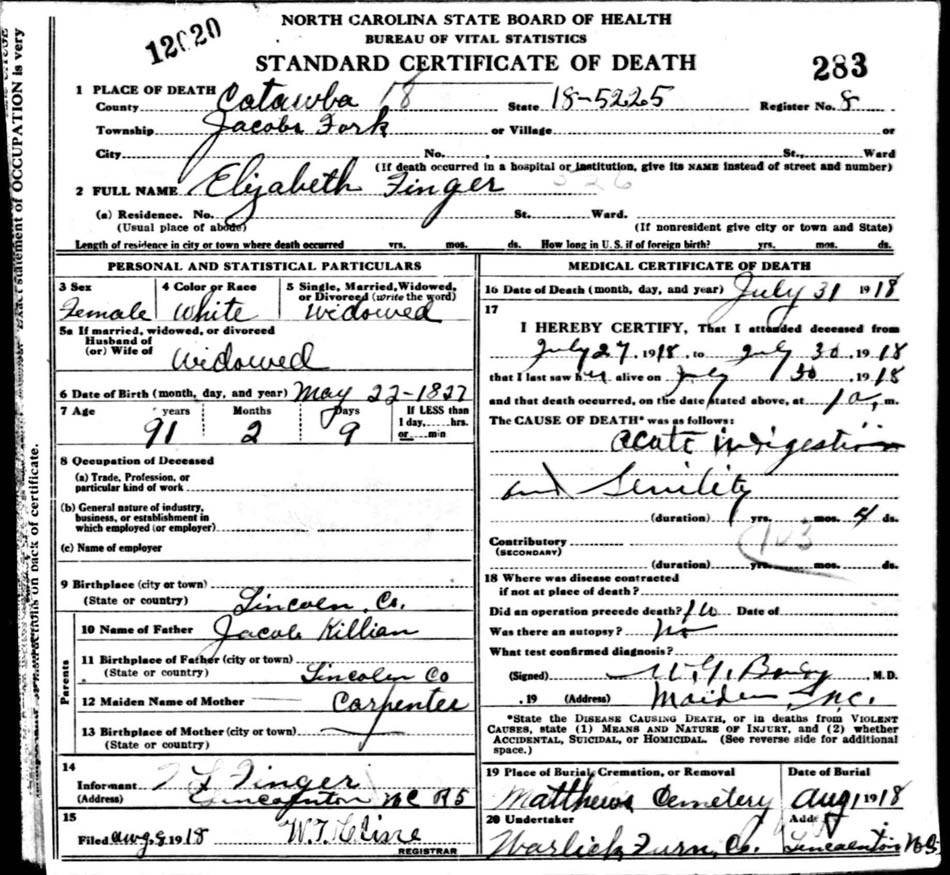 NORTH CAROLINA STATE BOARD OF HEALTH
BUREAU OF VITAL STATISTICS
STANDARD CERTIFICATE OF DEATH
12020
283
1 PLACE OF DEATH
County Catawba 18 State 18-5225 Register No. 8
Township Jacobs Fork or Village or
City No. St., Ward
(If death occurred in a hospital or institution, give its NAME instead of street and number)
2 FULL NAME Elizabeth Finger 326
(a) Residence. No. St. Ward.
(Usual place of abode) (If nonresident give city or town and State)
Length of residence in city or town where death occurred yrs. mos. ds. How long in U. S. if of foreign birth? yrs. mos. ds.
PERSONAL AND STATISTICAL PARTICULARS
3 Sex 4 Color or Race 5 Single, Married, Widowed,
or Divorced (write the word)
Female White Widowed
5a If married, widowed, or divorced
Husband of
(or) Wife of Widowed
6 Date of Birth (month, day, and year) May 22-1827
7 Age years Months Days If LESS than
1 day, hrs.
or min
91 2 9
8 Occupation of Deceased
(a) Trade, Profession, or
particular kind of work
(b) General nature of industry,
business, or establishment in
which employed (or employer)
(c) Name of employer
9 Birthplace (city or town)
(State or country) Lincoln Co.
Parents
10 Name of Father Jacob Killian
11 Birthplace of Father (city or town)
(State or country) Lincoln Co
12 Maiden Name of Mother Carpenter
13 Birthplace of Mother (city or town)
(State or country)
14
Informant Finger
(Address) Lincolnton NC R5
15
Filed Aug. 8 1918 W. T. Cline
REGISTRAR
MEDICAL CERTIFICATE OF DEATH
16 Date of Death (month, day, and year) July 31 1918
17
I HEREBY CERTIFY, That I attended deceased from
July 27, 1918, to July 30, 1918
that I last saw her alive on July 30, 1918
and that death occurred, on the date stated above, at 1 a, m.
The CAUSE OF DEATH* was as follows:
Acute indigestion
and Senility
(duration) yrs. mos. 4 ds.
Contributory 103
(SECONDARY)
(duration) yrs. mos. ds.
18 Where was disease contracted
if not at place of death?
Did an operation precede death? No Date of
Was there an autopsy? no
What test confirmed diagnosis?
(Signed) M. D.
, 19 (Address) Maiden N.C.
*State the DISEASE CAUSING DEATH, or in deaths from VIOLENT
CAUSES, state (1) MEANS AND NATURE OF INJURY, and (2) whether
ACCIDENTAL, SUICIDAL, or HOMICIDAL. (See reverse side for additional
space.)
19 Place of Burial, Cremation, or Removal Date of Burial
Matthews Cemetery Aug 1 1918
20 Undertaker Address
Warlick Furn. Co. Lincolnton NC
statement of OCCUPATION is very
on back of certificate.